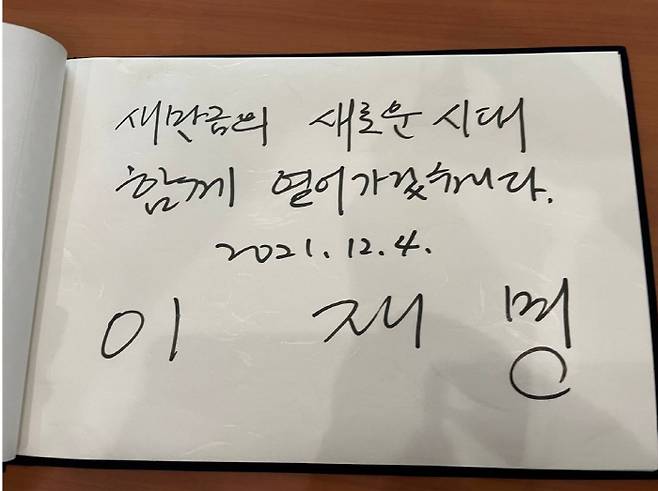 새만금의 새로운 시대
함께 열어가겠습니다.
2021. 12. 4.
이 재 명